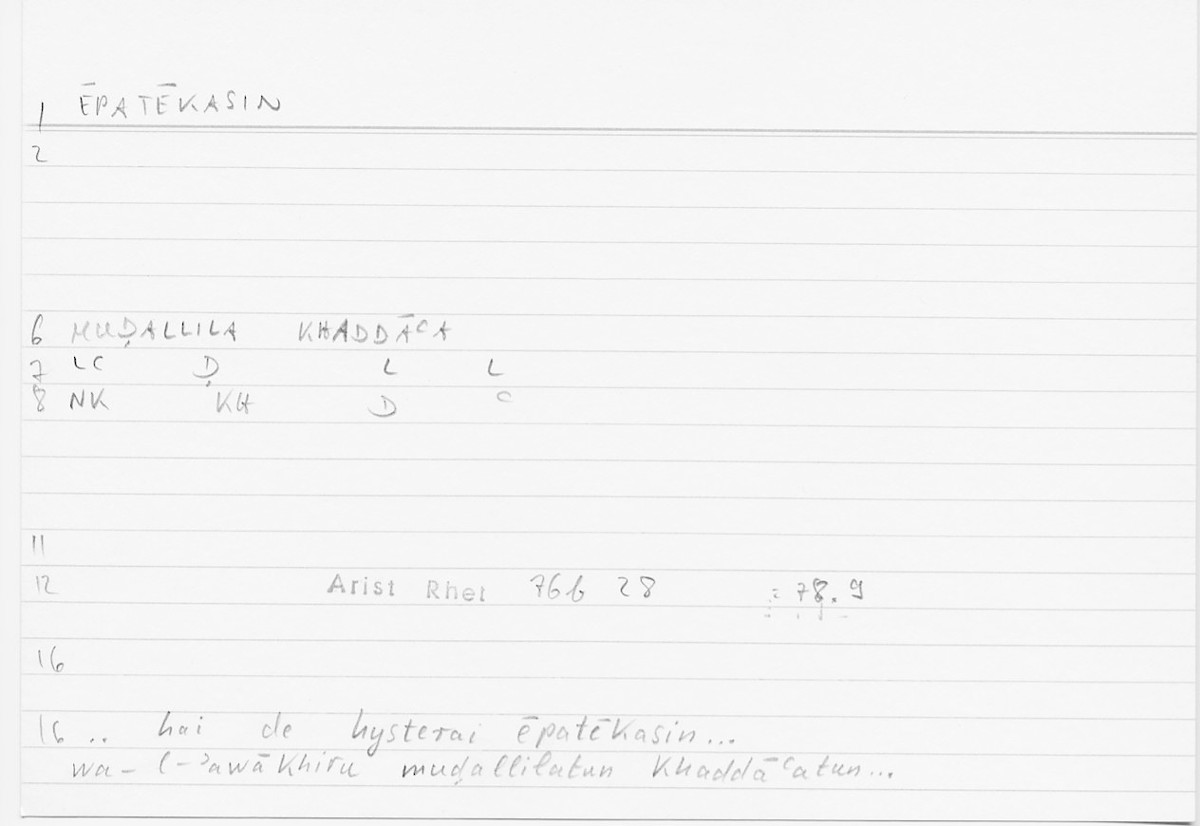 1 ĒPATĒKASIN
2
6 MUḌALLILA KHADDĀᶜA
7 LC Ḍ L L
8 NK KH D ᶜ
11
12 Arist Rhet 76b 28 = 78.9
16
16 .. hai de hysterai ēpatēkasin...
wa-l-ʾawākhiru muḍallilatun khaddāᶜatun...